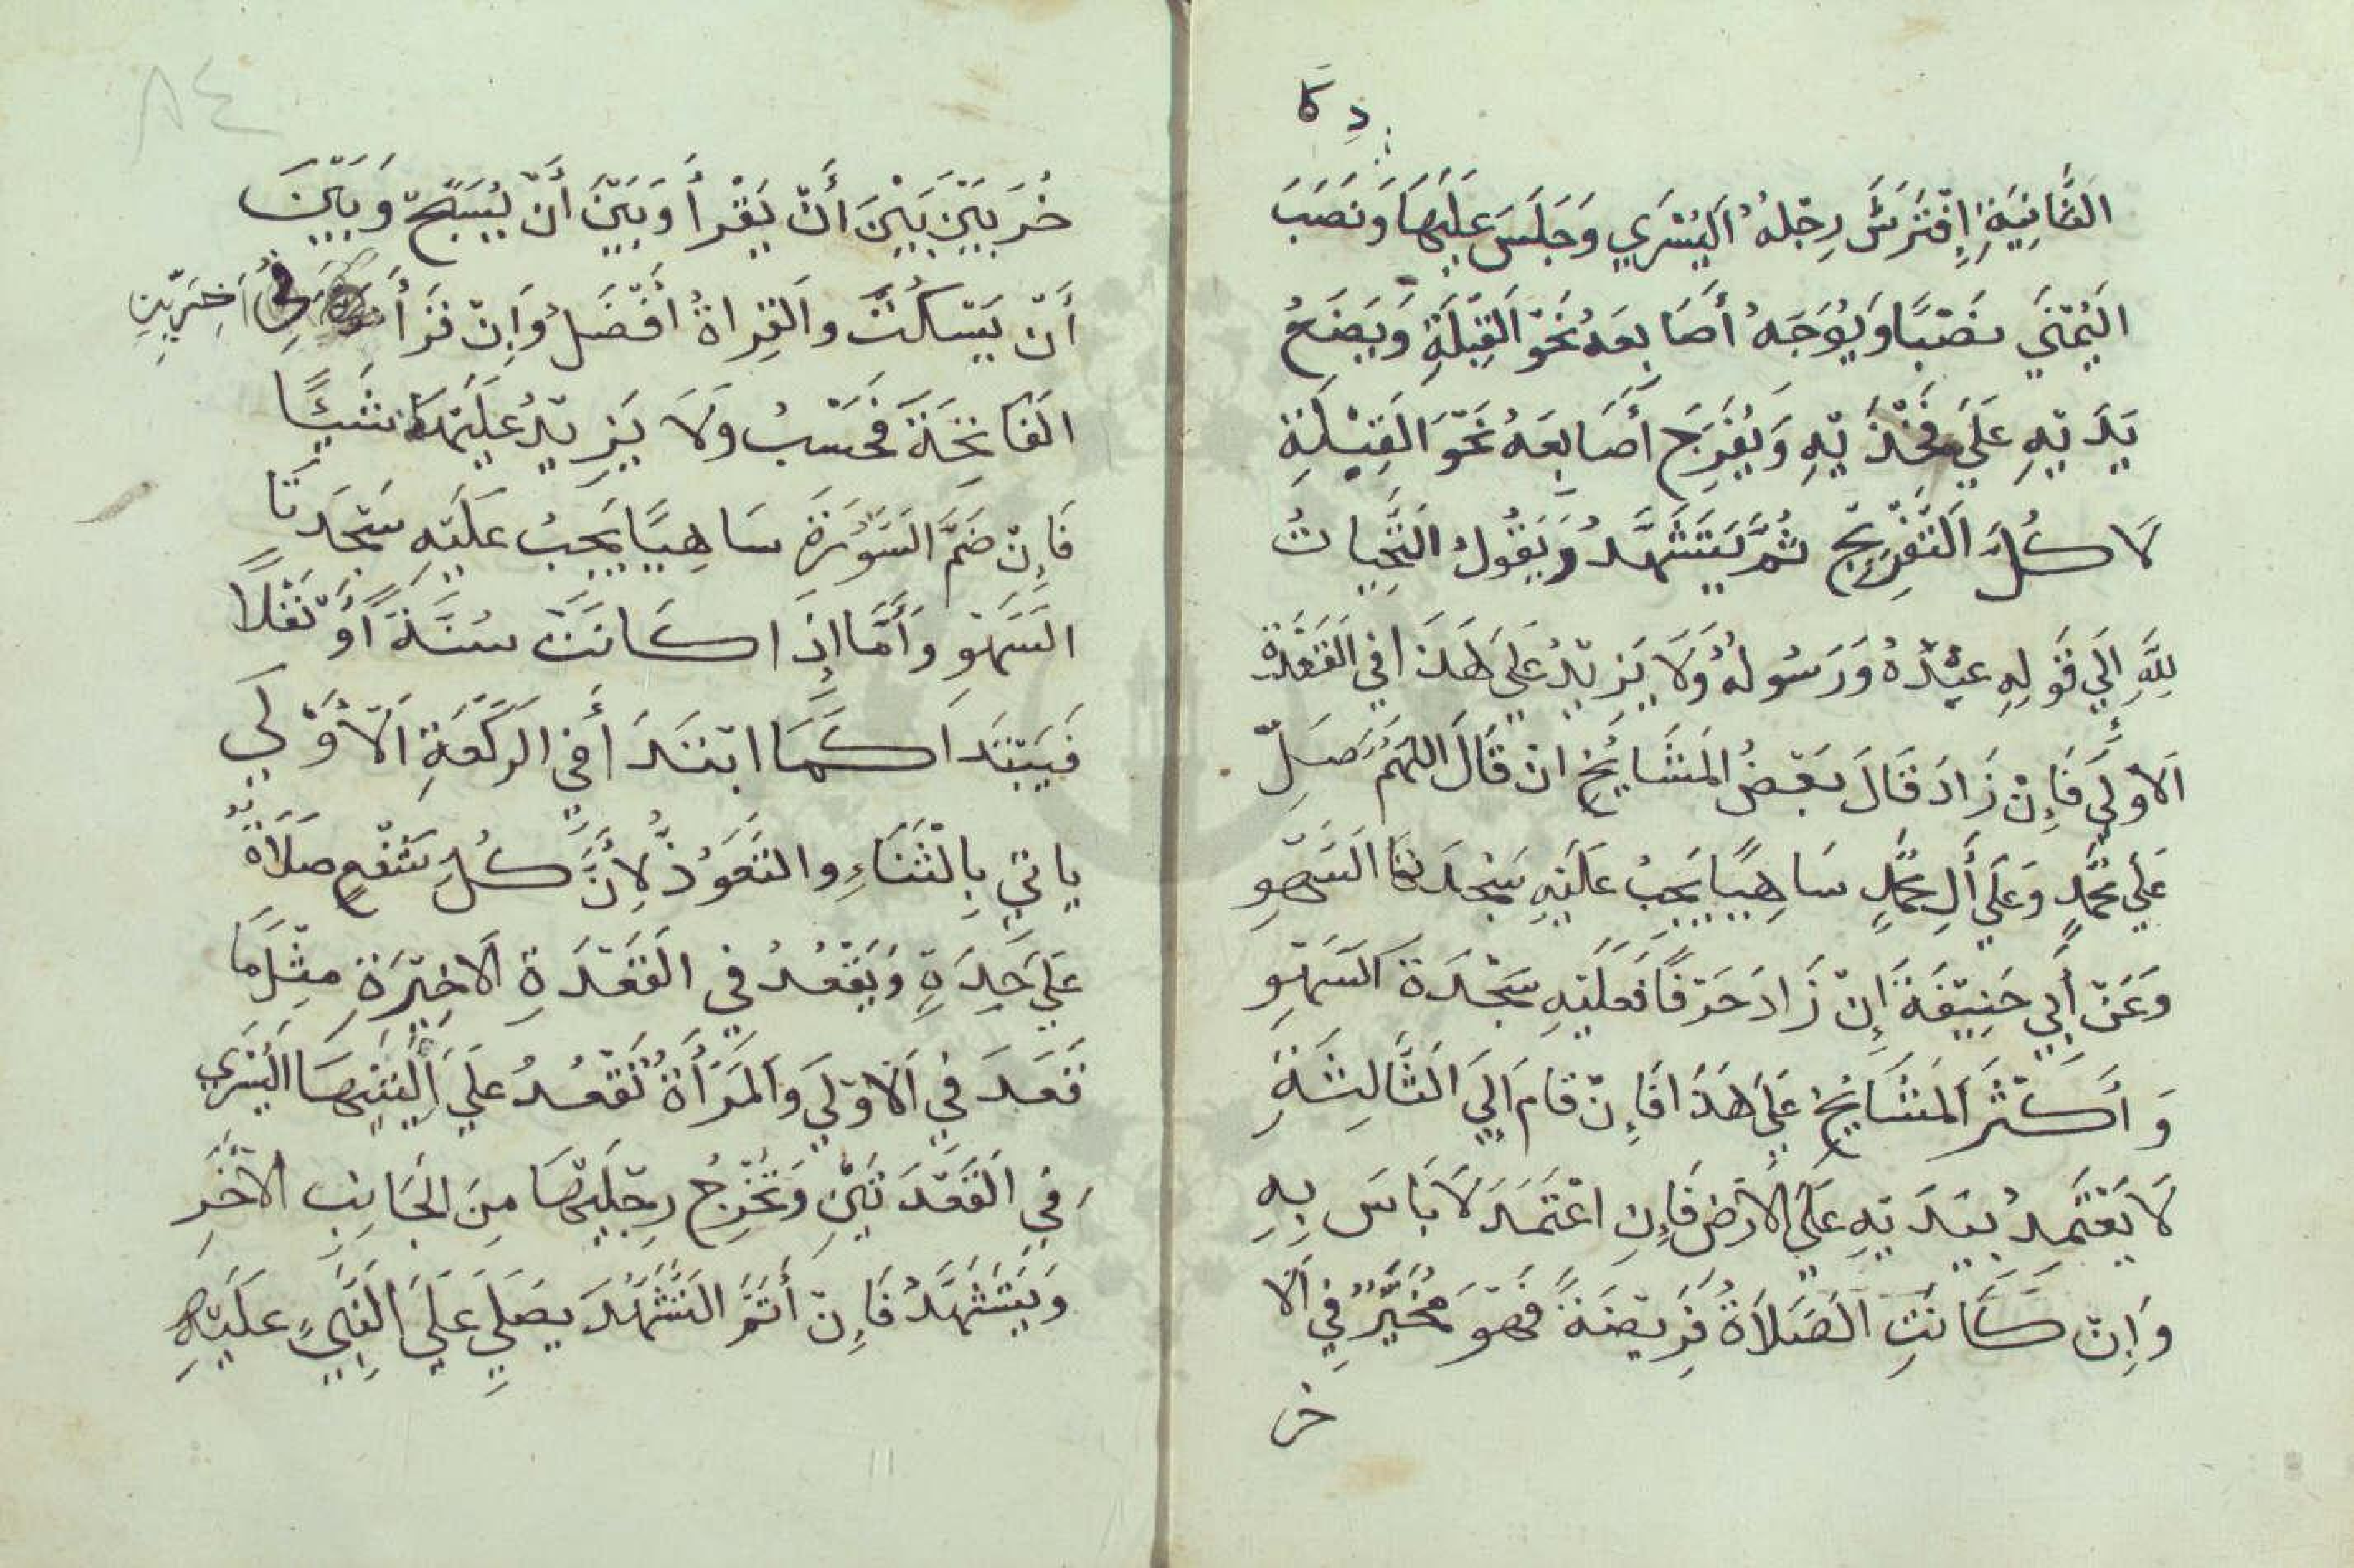 د كا
الثَّانِيَةِ إِفْتَرَشَ رِجْلَهُ الْيُسْرَي وَجَلَسَ عَلَيْهَا وَنَصَبَ
الْيُمْنَي نَصْبًا وَيُوَجِّهُ أَصَابِعَهُ نَحْوَ الْقِبْلَةِ وَيَضَعُ
يَدَيْهِ عَلَي فَخْذَيْهِ وَيُفَرِّجَ أَصَابِعَهُ نَحْوَ الْقِبْلَةِ
لَا كُلَّ التَّفْرِيْجِ ثُمَّ يَتَشَهَّدُ وَيَقُولُ التَّحِيَاتُ
لِلَّهِ اِلَي قَوْلِهِ عَبْدُهُ وَرَسُولُهُ وَلَا يَزِيْدُ عَلَي هَذَا فِي الْقَعْدَةِ
الْاُولَي فَإِنْ زَادَ قَالَ بَعْضُ الْمَشَايِخِ ان قَالَ اللهُمَّ صَلِّ
عَلَي مُحَمَّدٍ وَعَلَي أَلِ مُحَمَّدٍ سَاهِيًا يَجِبُ عَلَيْهِ سَجْدَتَا السَّهْوِ
وَعَنْ أَبِي حَنِيْفَةَ إِنْ زَادَ حَرْفًا فَعَلَيْهِ سَجْدَةَ السَّهْوِ
وَ أَكْثَرَ الْمَشَايِخُ عَلَي هَذَا فَإِنْ قَامَ اِلَيَ الثَّالِثَةِ
لَا يَعْتَمِدُ بِيَدَيْهِ عَلَي الْاَرْضِ فَإِنِ اعْتَمَدَ لَا بَاسَ بِهِ
وَاِنْ كَانَتِ الصَّلَاةُ فَرِيْضَةً فَهْوَ مُخَيَّرٌ فِي الْا
خر
٨٤
خُرَيَيْنِ بَيْنَ اَنْ يَقْرَأُ وَبَيْنَ أَنْ يُسَبِّحَ وَبَيْنَ
أَنْ يَسْكُتَ وَالْقِرَاةُ أَفْضَلُ وَاِنْ قَرَأَ فِي اُخِرَيَيْنِ
الْفَاتِحَةَ فَحَسْبُ وَلَا يَزِيْدُ عَلَيْهَا شَيْئًا
فَاِنْ ضَمَّ السُّوْرَةَ سَاهِيًا يَجِبُ عَلَيْهِ سَجْدَتَا
السَّهْوِ وَأَمَّا اِذَا كَانَتْ سُنَّةً أَوْ نَفْلًا
فَيَبْتَدَا كَمَا ابْتَدَأَ فِي الرَّكْعَةِ الْأُوْلَي
يَاتِي بِالثَّنَاءِ وَالتَّعَوُّذِ لِاَنَّ كُلَّ شَفْعٍ صَلَاةٌ
عَلَي حِدَةٍ وَيَقْعُدُ فِي الْقَعْدَةِ الْاَخِيْرَةِ مِثْلَ مَا
قَعَدَ فِي الْاُوْلَي وَالْمَرْأَةُ تَقْعُدُ عَلَي أَلْيَتِهَا الْيُسْرَي
فِي الْقَعْدَتَيْنِ وَتُخْرِجُ رِجْلَيْهَا مِنَ الْجَانِبِ الْاَخَرِ
وَيَتَشَهَّدُ فَاِنْ أَتَمَّ التَّشَهُّدَ يُصَلِي عَلَي النَّبِيِّ عَلَيْهِ